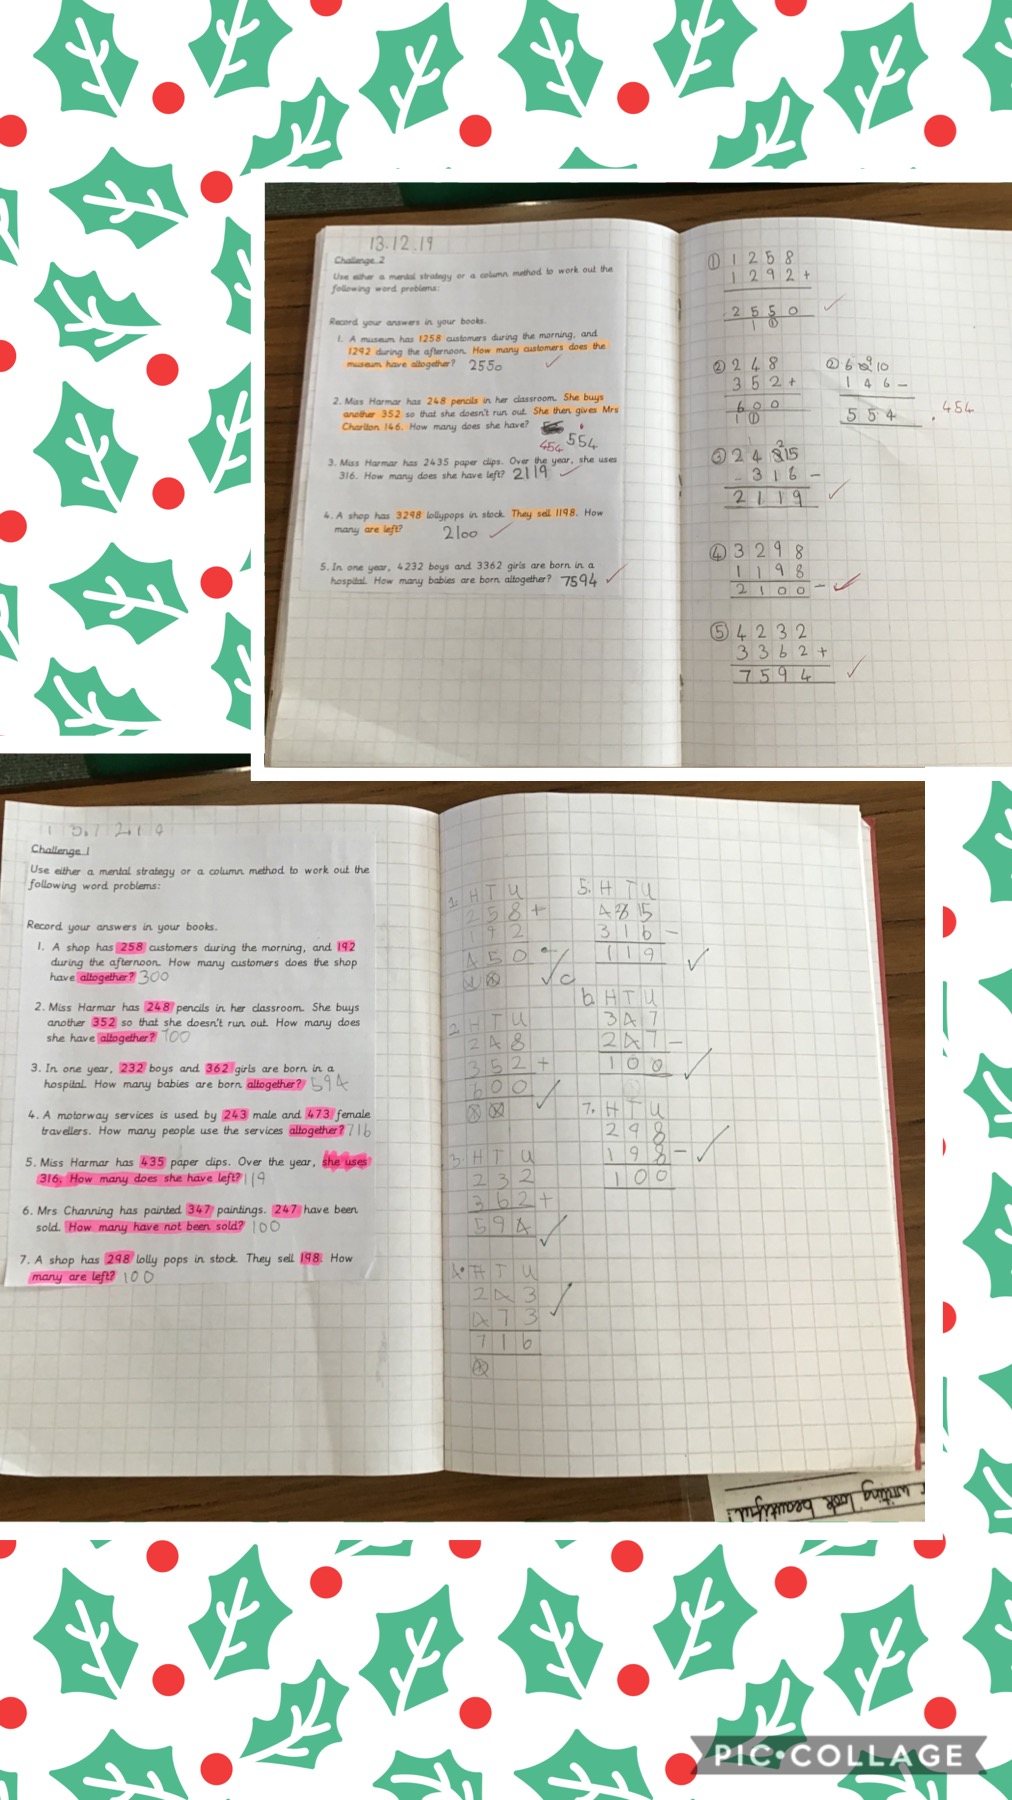 13.12.19
Challenge 2
Use either a mental strategy or a column method to work out the
following word problems:
Record your answers in your books.
1. A museum has 1258 customers during the morning, and
1292 during the afternoon. How many customers does the
museum have altogether? 2550
2. Miss Harmar has 248 pencils in her classroom. She buys
another 352 so that she doesn't run out. She then gives Mrs
Charlton 146. How many does she have?
454 554
3. Miss Harmar has 2435 paper clips. Over the year, she uses
316. How many does she have left? 2119
4. A shop has 3298 lollypops in stock. They sell 1198. How
many are left? 2100
5. In one year, 4232 boys and 3362 girls are born in a
hospital. How many babies are born altogether? 7594
① 1 2 5 8
1 2 9 2 +
2 5 5 0
1 ①
② 2 4 8
3 5 2 +
6 0 0
1 ①
② 6 0 9 10
1 4 6 -
5 5 4 . 454
③ 2 4 3 2 15
3 1 6 -
2 1 1 9
④ 3 2 9 8
1 1 9 8
2 1 0 0 -
⑤ 4 2 3 2
3 3 6 2 +
7 5 9 4
13.12.19
Challenge 1
Use either a mental strategy or a column method to work out the
following word problems:
Record your answers in your books.
1. A shop has 258 customers during the morning, and 192
during the afternoon. How many customers does the shop
have altogether? 300
2. Miss Harmar has 248 pencils in her classroom. She buys
another 352 so that she doesn't run out. How many does
she have altogether? 700
3. In one year, 232 boys and 362 girls are born in a
hospital. How many babies are born altogether? 594
4. A motorway services is used by 243 male and 473 female
travellers. How many people use the services altogether? 716
5. Miss Harmar has 435 paper clips. Over the year, she uses
316. How many does she have left? 119
6. Mrs Channing has painted 347 paintings. 247 have been
sold. How many have not been sold? 100
7. A shop has 298 lolly pops in stock. They sell 198. How
many are left? 100
1. H T U
2 5 8 +
1 9 2
4 5 0
C
2. H T U
2 4 8
3 5 2 +
6 0 0
3. H T U
2 3 2
3 6 2 +
5 9 4
4. H T U
2 4 3
4 7 3
7 1 6
5. H T U
4 3 2 15
3 1 6 -
1 1 9
6. H T U
3 4 7
2 4 7 -
1 0 0
7. H T U
2 9 8
1 9 8 -
1 0 0
writing look beautiful!
PIC•COLLAGE